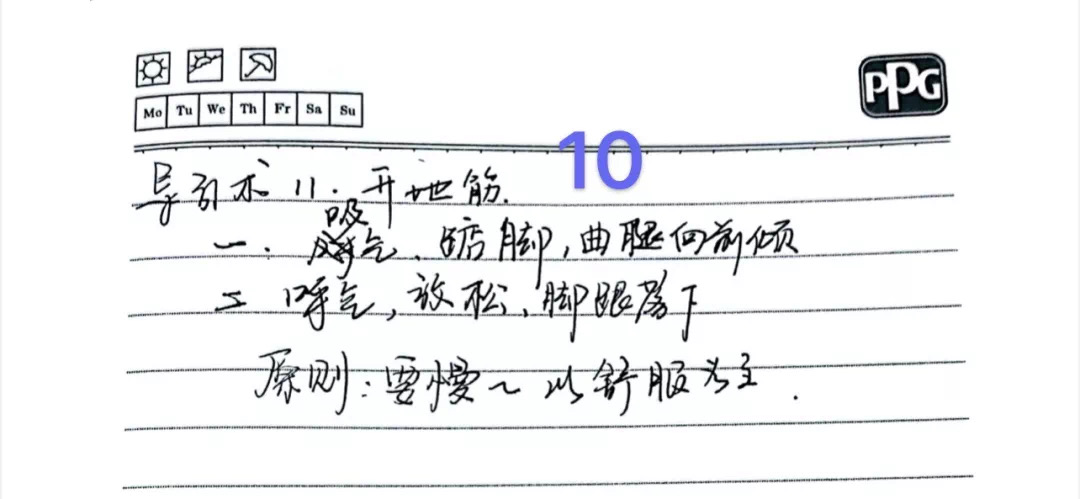 PPG
Mo Tu We Th Fr Sa Su
10
导引术 11. 开地筋.
一. 吸气. 踮脚, 曲腿向前倾
二 呼气, 放松, 脚跟落下
原则: 要慢~ 以舒服为主.